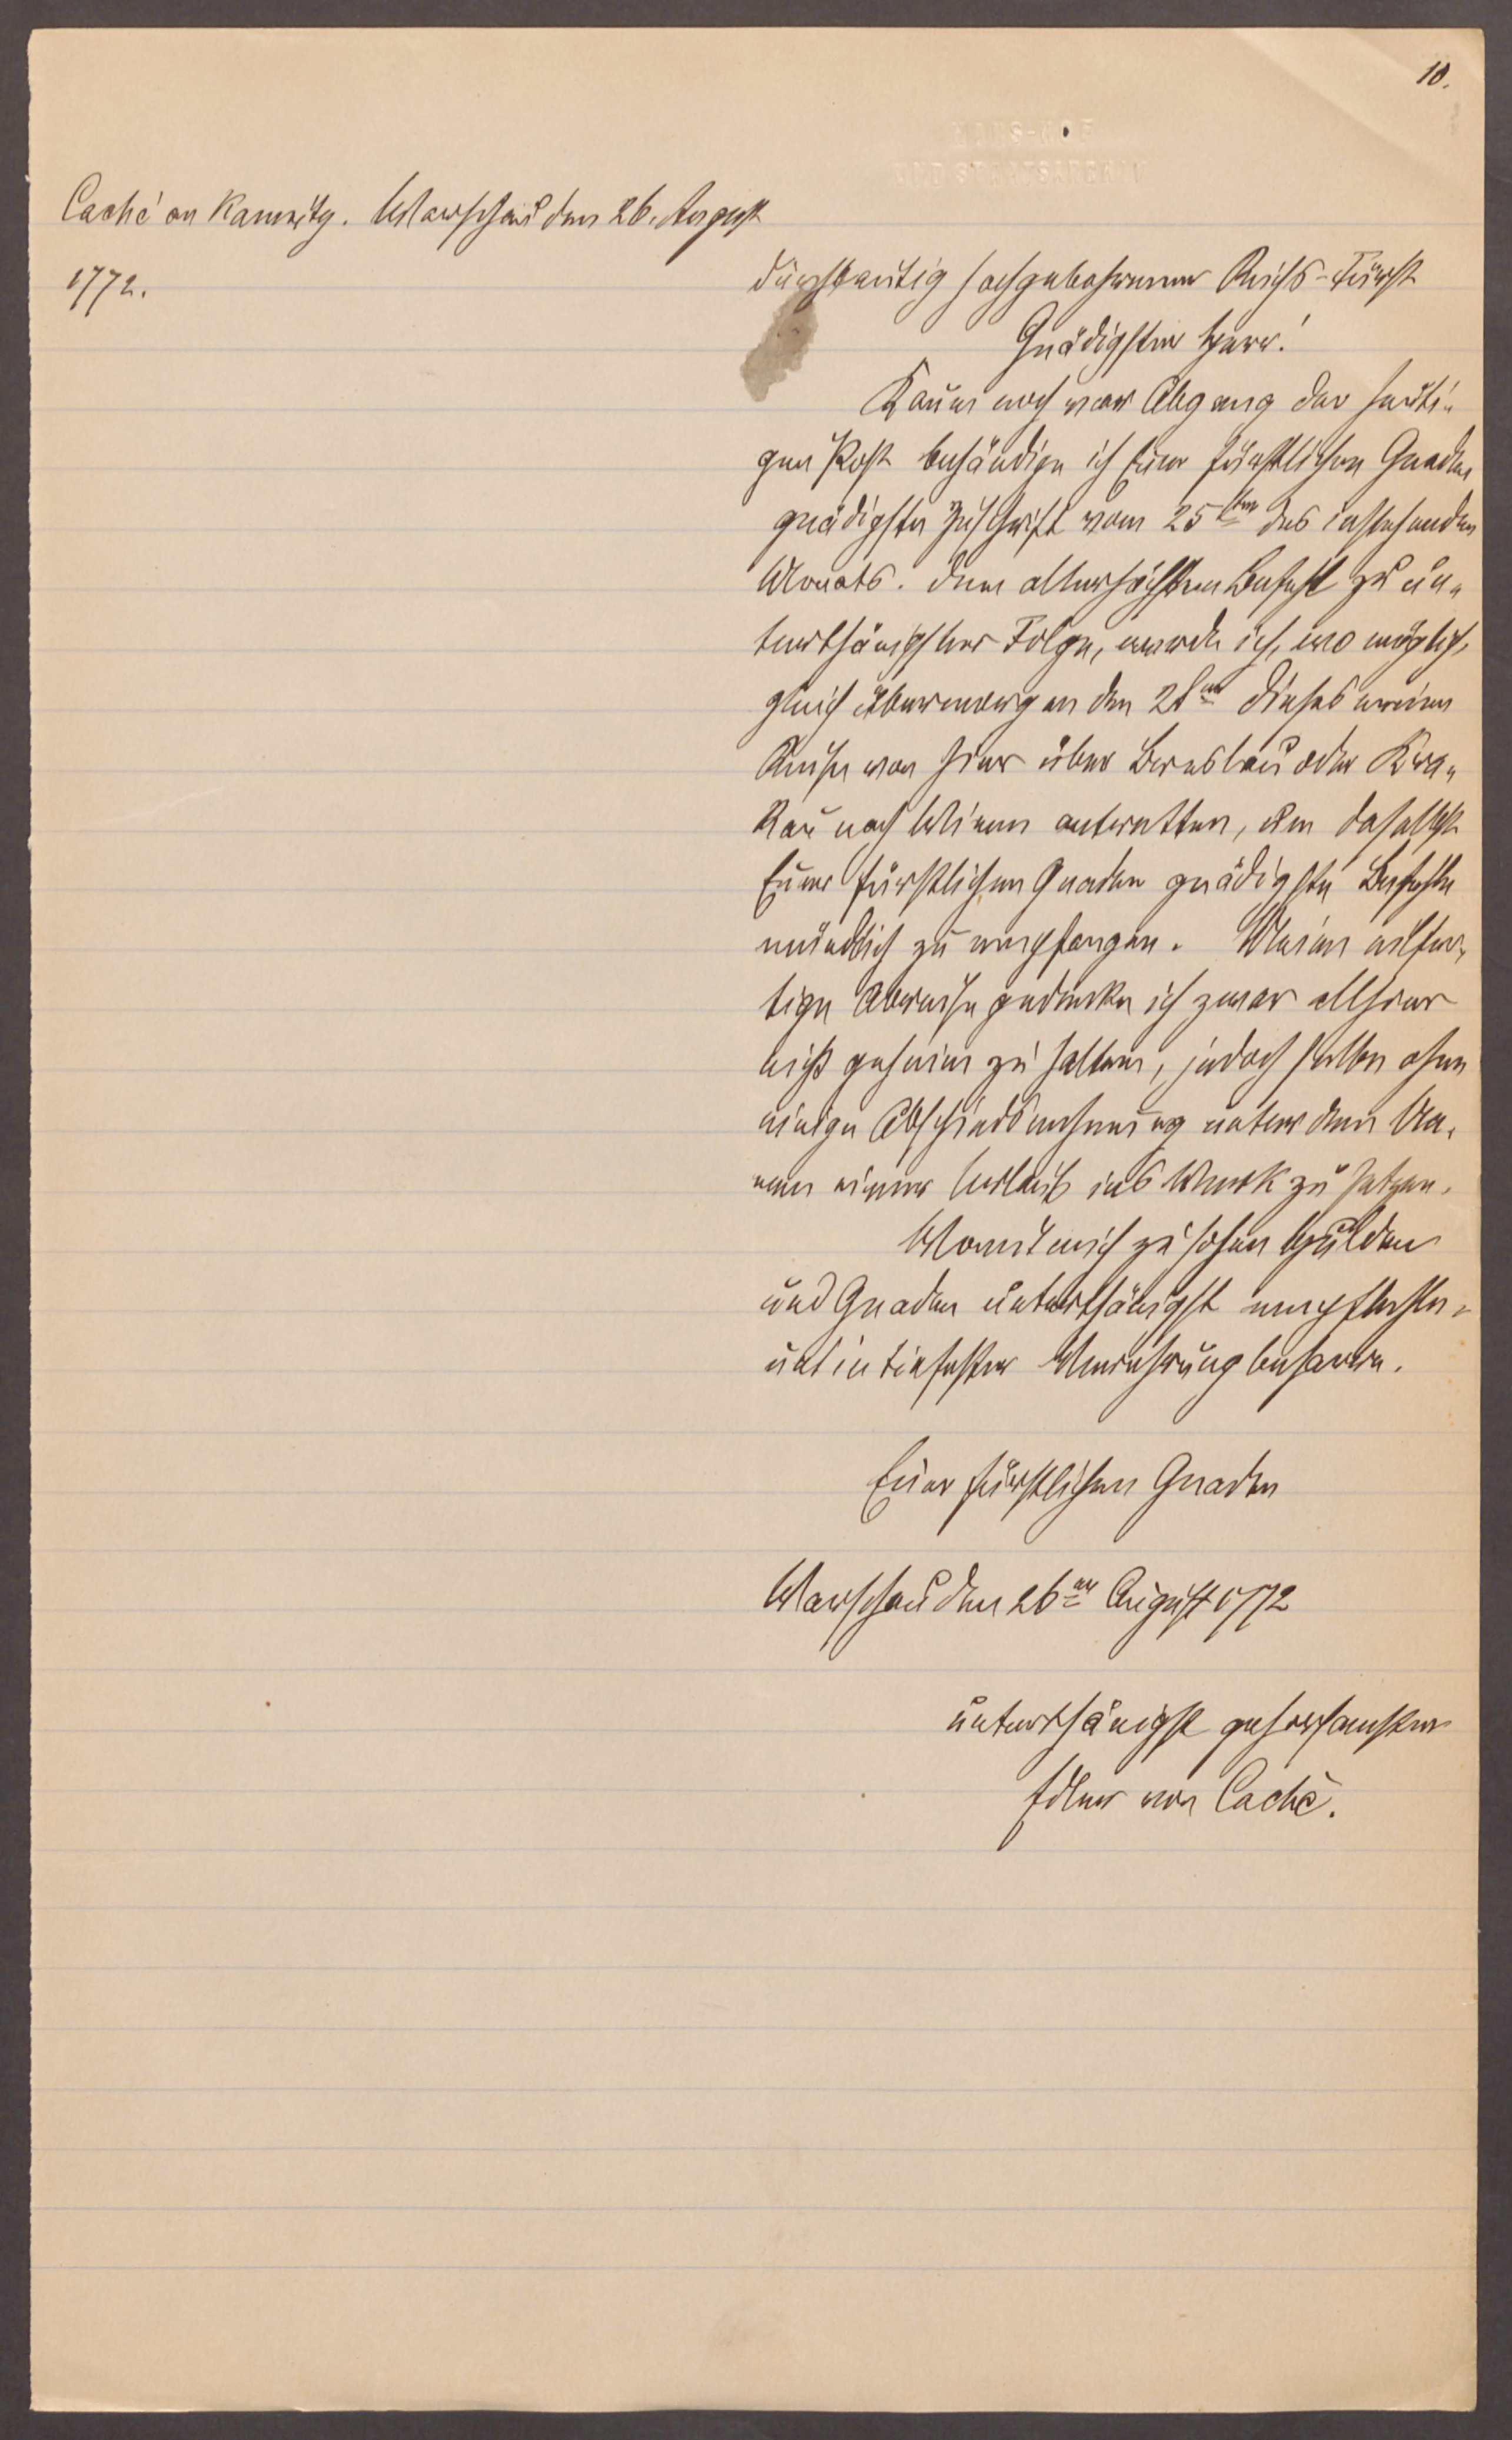 10.
Caché an Kaunitz. Warschau den 26. August
1772.
Durchlautig hochgebohrener Reichs-Fürst
Gnädigster Herr!
Kaum noch vor Abgang der heuti„
gen Post behändige ich Euer fürstlichen Gnaden
gnädigste Zuschrift vom 25ten des instehenden
Monats. Dem allerhöchsten Befehl zu un„
terthänigster Folge, werde ich, wo möglich,
gleich übermorgen den 28ten dieses meine
Reise von hier über Breslau oder Kra„
kau nach Wienn antretten, um daselbst
Euer fürstlichen Gnaden gnädigste Befehle
mündlich zu empfangen. Meine eilfer„
tige Abreise gedenke ich zwar allhier
nicht geheim zu halten, jedoch selbe ohne
einige Abschiednehmung unter dem Na„
men eines Urlaub ins Werk zu setzen.
Womit mich zu hohen Hulden
und Gnaden unterthänigst empfehle„
und in tiefester Verehrung beharre.
Euer fürstlichen Gnaden
Warschau den 26ten August 1772
unterthänigst gehorsamster
Edler von Caché.